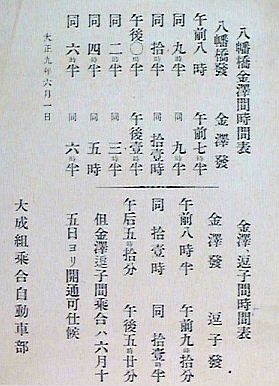 八幡橋金澤間時間表
八幡橋發　金澤發
午前八時　午前七時半
同九時半　同九時半
同拾時半　同拾壹時半
午後〇時半　午後壹時半
同二時半　同三時半
同四時半　同五時
同六時半　同六時半
大正九年六月一日
金澤、逗子間時間表
金澤發　逗子發
午前八時半　午前九時拾分
同拾壹時　同拾壹時半
午后五時拾分　午後五時廿分
但金澤逗子間乗合ハ六月十
五日ヨリ開通可仕候
大成組乗合自動車部